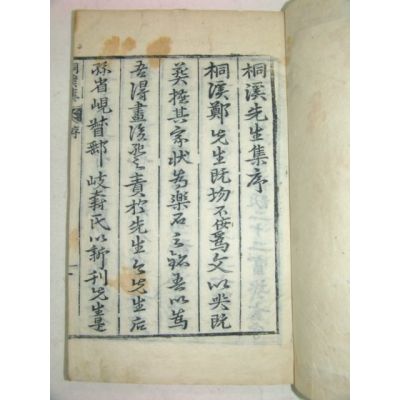 桐溪先生集序
桐溪鄭先生既埸不佞爲文以哭既
葬撫其家狀爲樂石之銘吾以爲
吾得畫後死之責於先生今先生后
孫省峴督郵岐壽氏以新刊先生
桐溪集 序